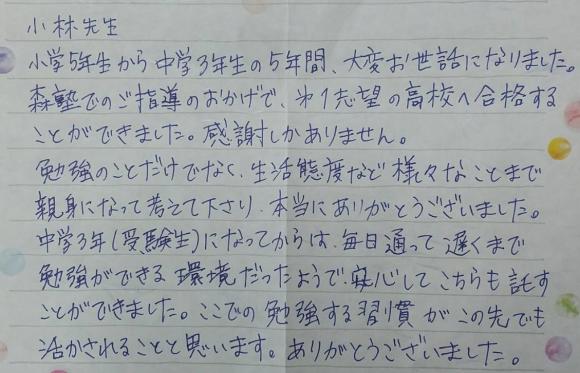 小林先生
小学5年生から中学3年生の5年間、大変お世話になりました。
森塾でのご指導のおかげで、第1志望の高校へ合格する
ことができました。感謝しかありません。
勉強のことだけでなく、生活態度など様々なことまで
親身になって考えて下さり、本当にありがとうございました。
中学3年(受験生)になってからは、毎日通って遅くまで
勉強ができる環境だったようで、安心してこちらも託す
ことができました。ここでの勉強する習慣がこの先でも
活かされることと思います。ありがとうございました。